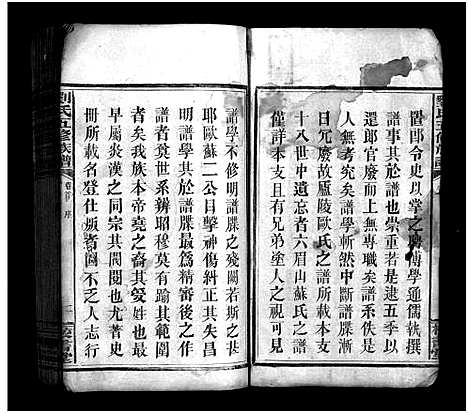 置郎令史以掌之聘博學通儒執撰
譜事其於譜也崇重若是逮五季以
還郎官廢而上無專職矣譜系佚於
日冗廢矣譜學斬然中斷譜牒漸
十入世中遺忘者六眉山蘇氏之譜
僅詳本支且有兄弟塗人之視可見
譜學不修明譜牒之殘闕若斯之甚
耶歐蘇二公目擊神傷糾正其失昌
明譜學其於譜牒最爲精審後之作
者莫世系辨昭穆莫有踰其範圍
者矣我族本帝堯之裔其受姓也
早屬炎漢之同宗其傳尤著史
冊所載名登仕版者固不乏人志行
劉氏五修族譜
卷首 序